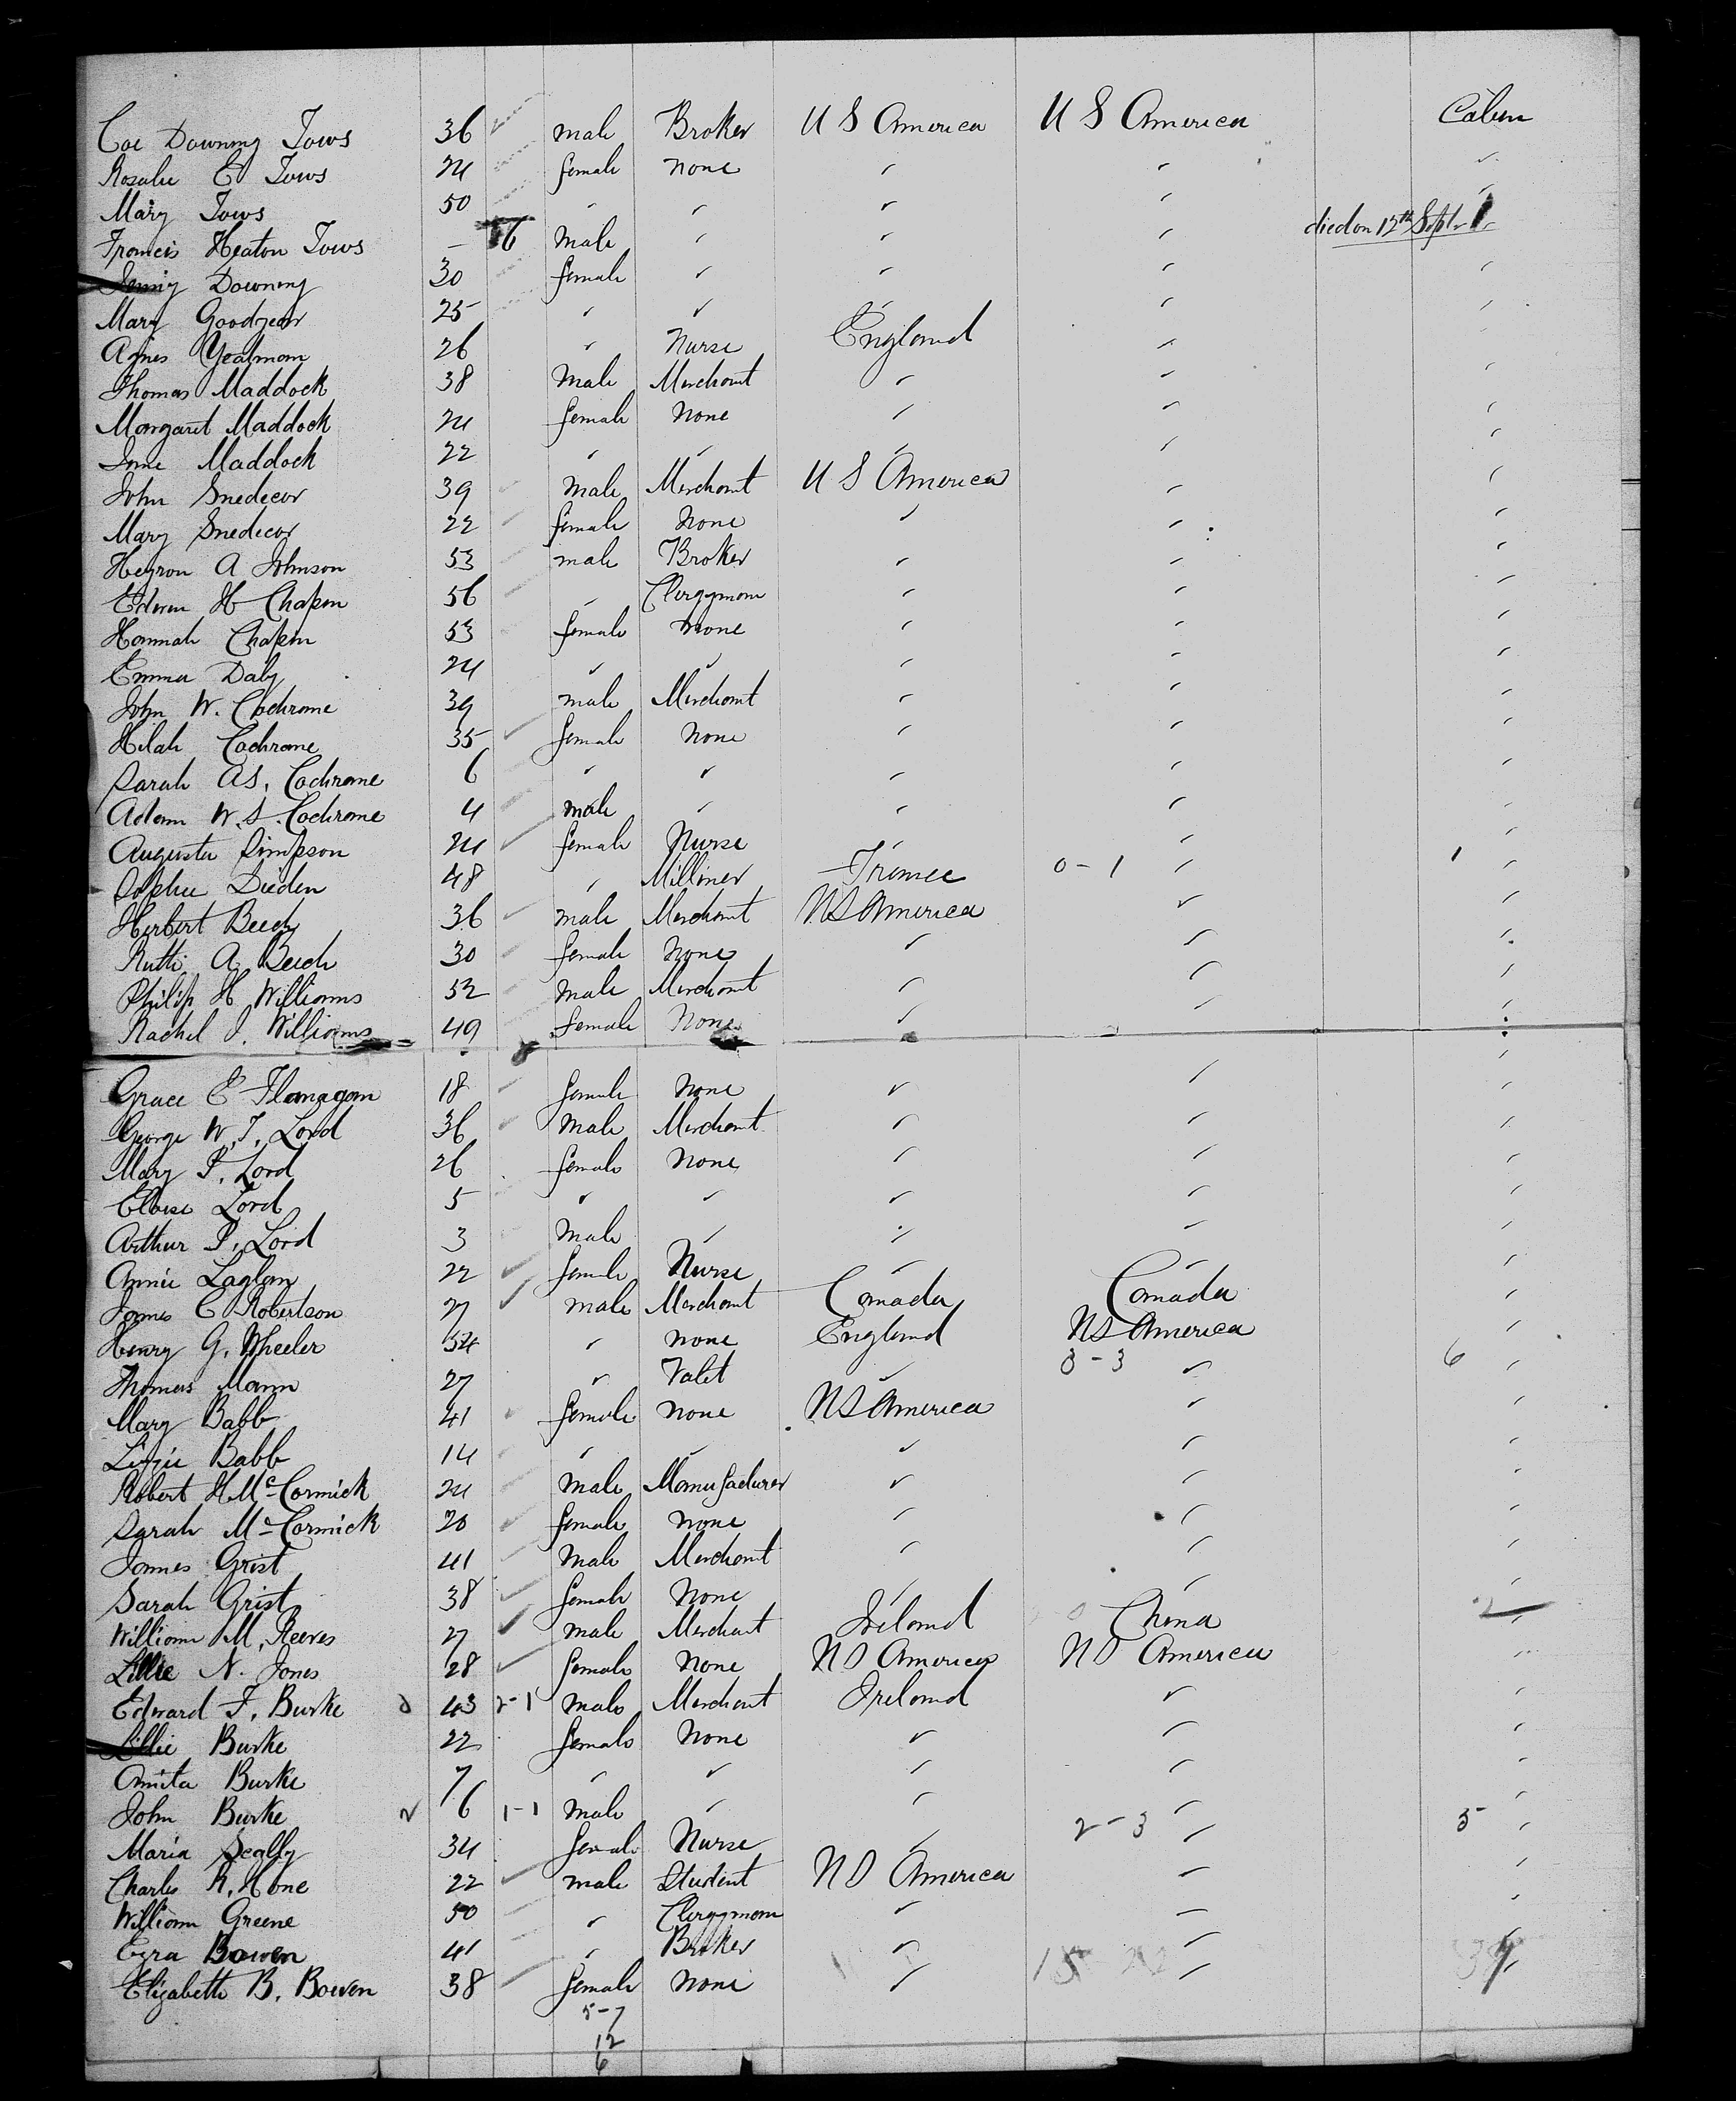 Coe Downing Tows 36 ✓ male Broker U S America U S America Cabin
Rosalie E Tows 24 female none " " "
Mary Tows 50 " " " " "
Francis Heaton Tows - 6 Male " " " died on 12th Sept
Downing 30 female " " " "
Mary Goodyear 25 " " " " "
Agnes Yealmom 26 " Nurse England " "
Thomas Maddock 38 Male Merchant " " "
Margaret Maddock 24 female None " " "
Jane Maddock 22 " " " " "
John Snedecor 39 Male Merchant U S America " "
Mary Snedecor 22 female None " " "
A Johnson 53 male Broker " " "
Edwin H Chapin 56 " Clergyman " " "
Hannah Chapin 53 female None " " "
Emma Daly 24 " " " " "
John W. Cochrane 39 male Merchant " " "
Hilah Cochrane 35 ✓ female None " " "
Sarah A S. Cochrane 6 " " " " "
Adam W. S. Cochrane 4 male " " " "
Augusta Simpson 24 ✓ female Nurse " " "
Sophie Dieden 48 " Milliner France 0-1 " 1 "
Herbert Beech 36 ✓ male Merchant U S America " "
Ruth A Beech 30 female None " " "
Philip H Williams 52 male Merchant " " "
Rachel J. Williams 49 female None " " "
Grace E Flanagan 18 female None " " "
George W. T. Lord 36 Male Merchant " " "
Mary P. Lord 26 female None " " "
Eloise Lord 5 " " " " "
Arthur P. Lord 3 Male " " " "
Annie Laglan 22 ✓ female Nurse " " "
James C Robertson 27 ✓ male Merchant Canada Canada "
Henry G. Wheeler 34 " none England U S America "
Thomas Mann 27 " Valet " 3-3 " 6 "
Mary Babb 41 female none U S America " "
Lizzie Babb 14 " " " " "
Robert H McCormick 24 Male Manufacturer " " "
Sarah McCormick 20 female none " " "
James Grist 41 Male Merchant " " "
Sarah Grist 38 ✓ female None " " "
William M. Reeves 27 ✓ male Merchant Ireland China 2 "
Lillie N. Jones 28 ✓ female None U S America U S America "
Edward F. Burke 43 2-1 male Merchant Ireland " "
Lillie Burke 22 female None " " "
Anita Burke 7 " " " " "
John Burke 6 1-1 Male " " " "
Maria Scally 34 female Nurse " 2-3 " 5 "
Charles R. Hone 22 ✓ male Student U S America " "
William Greene 50 " Clergyman " " "
Ezra Bowen 41 " Broker " " "
Elizabeth B. Bowen 38 ✓ female None " " "
5-7
12
6